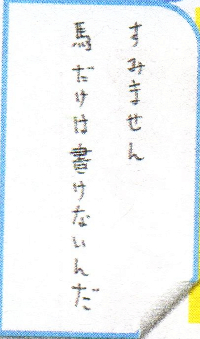 すみません
馬だけは書けないんだ